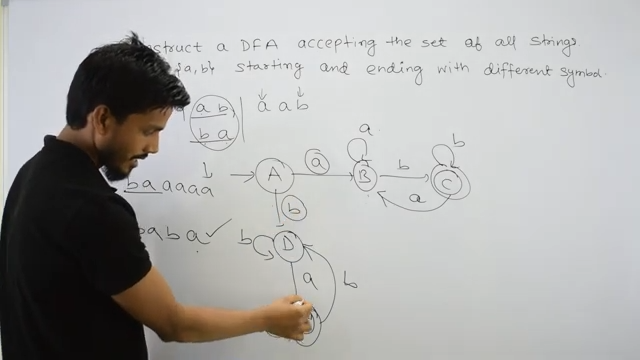 struct a DFA accepting the set of all strings
{a,b} starting and ending with different symbol.
ab, | a a b
ba
b a a a a a
A a B b C
a
b
a
b
a b a ✓
b D
a b